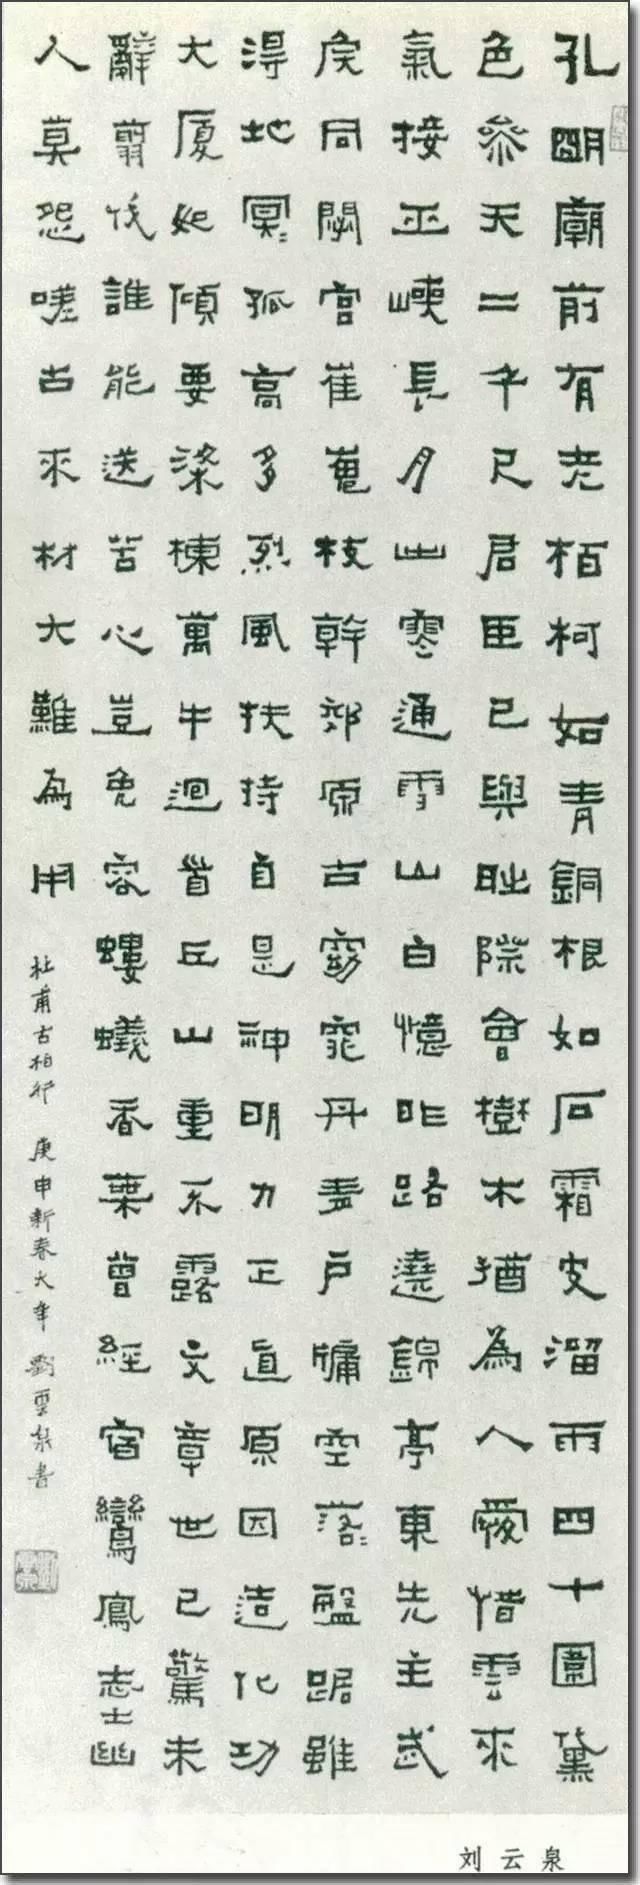 孔明廟前有老栢柯如青銅根如石霜皮溜雨四十圍黛
色參天二千尺君臣已與時際會樹木猶為人愛惜雲來
氣接巫峽長月出寒通雪山白憶昨路遶錦亭東先主武
侯同閟宮崔嵬枝幹郊原古窈窕丹青戶牖空落〻盤踞雖
得地冥〻孤高多烈風扶持自是神明力正直原因造化功
大厦如傾要梁棟萬牛迴首丘山重不露文章世已驚未
辭翦伐誰能送苦心豈免容螻蟻香葉曾經宿鸞鳳志士幽
人莫怨嗟古來材大難為用
杜甫古柏行 庚申新春大年 劉雲泉書
刘云泉